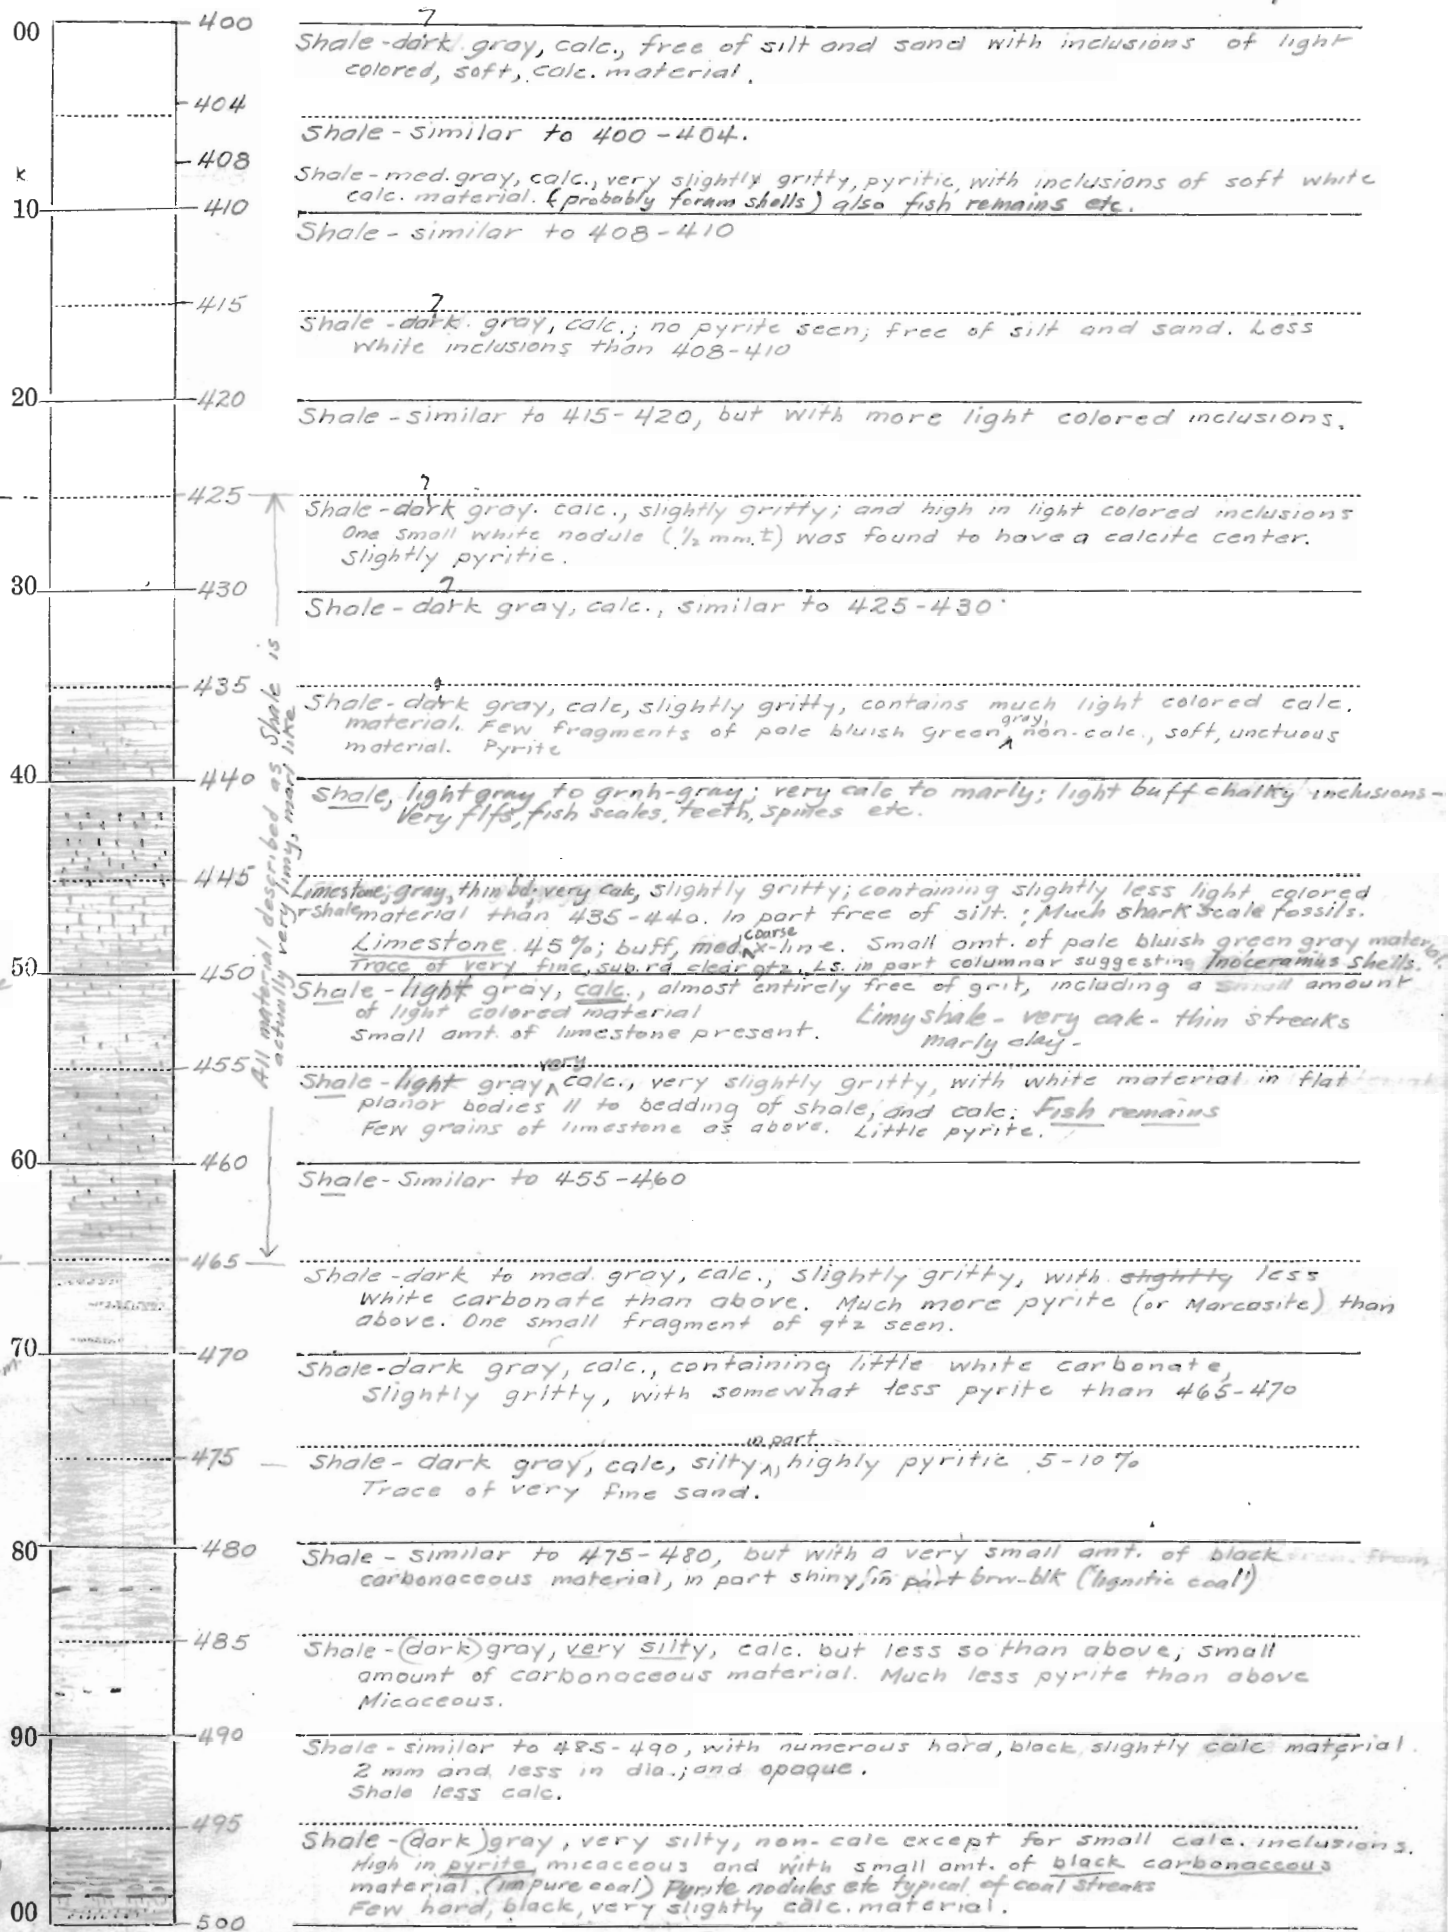 00 400 ?
Shale-dark gray, calc., free of silt and sand with inclusions of light
colored, soft, calc. material.
404
Shale - similar to 400-404.
408
k
Shale-med. gray, calc., very slightly gritty, pyritic, with inclusions of soft white
calc. material. (probably foram shells) also fish remains etc.
10 410
Shale - similar to 408-410
415 ?
Shale - dark. gray, calc.; no pyrite seen; free of silt and sand. Less
white inclusions than 408-410
20 420
Shale - similar to 415-420, but with more light colored inclusions.
425 ?
Shale-dark gray. calc., slightly gritty; and high in light colored inclusions
One small white nodule (1/2 mm. ±) was found to have a calcite center.
Slightly pyritic.
30 430 ?
Shale - dark gray, calc., similar to 425-430
All material described as Shale is
actually very limy, marl like
435
Shale-dark gray, calc, slightly gritty, contains much light colored calc.
gray,
material. Few fragments of pale bluish green ^ non-calc., soft, unctuous
material. Pyrite
40 440
Shale, light gray to grnh-gray; very calc to marly; light buff chalky inclusions-
Very flfs, fish scales, teeth, spines etc.
445
Limestone; gray, thin bd; very calc, slightly gritty; containing slightly less light colored
+ shale material than 435-440. In part free of silt. ; Much shark scale fossils.
coarse
Limestone 45%; buff, med. ^ x-line. Small amt. of pale bluish green gray material.
Trace of very fine, sub.rd clear qtz. Ls. in part columnar suggesting Inoceramus shells.
50 450
Shale - light gray, calc., almost entirely free of grit, including a small amount
of light colored material
Limy shale - very calc - thin streaks
Small amt. of limestone present.
marly clay -
455
very
Shale - light gray ^ calc., very slightly gritty, with white material in flat
planar bodies // to bedding of shale, and calc. Fish remains
Few grains of limestone as above. Little pyrite.
60 460
Shale - Similar to 455-460
465
Shale-dark to med. gray, calc., slightly gritty, with slightly less
white carbonate than above. Much more pyrite (or Marcasite) than
above. One small fragment of qtz seen.
70 470
m.
Shale-dark gray, calc., containing little white carbonate,
slightly gritty, with somewhat less pyrite than 465-470
in part
475
Shale - dark gray, calc, silty ^, highly pyritic 5-10%
Trace of very fine sand.
80 480
Shale - similar to 475-480, but with a very small amt. of black
carbonaceous material, in part shiny, in part brw-blk ("lignitic coal")
485
Shale-(dark) gray, very silty, calc. but less so than above; small
amount of carbonaceous material. Much less pyrite than above
Micaceous.
90 490
Shale - similar to 485-490, with numerous hard, black, slightly calc material.
2 mm and less in dia.; and opaque.
Shale less calc.
495
Shale-(dark) gray, very silty, non-calc except for small calc. inclusions.
High in pyrite, micaceous and with small amt. of black carbonaceous
material. (impure coal) Pyrite nodules etc typical of coal streaks
Few hard, black, very slightly calc. material.
00 500